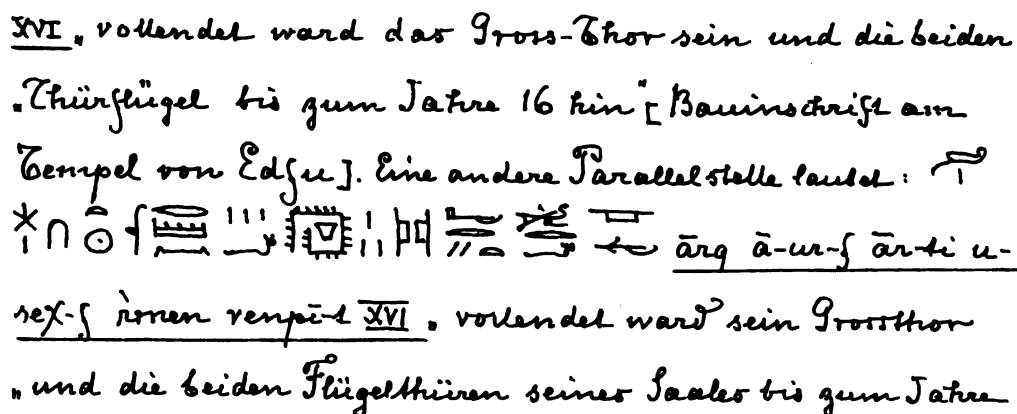 XVI „vollendet ward das Gross-Thor sein und die beiden
„Thürflügel bis zum Jahre 16 hin“ [Bauinschrift am
Tempel von Edfu]. Eine andere Parallelstelle lautet:
ārq ā-ur-f ār-ti u-
seχ-f r̀men renpi-t XVI „vollendet ward sein Grossthor
„und die beiden Flügelthüren seines Saales bis zum Jahre